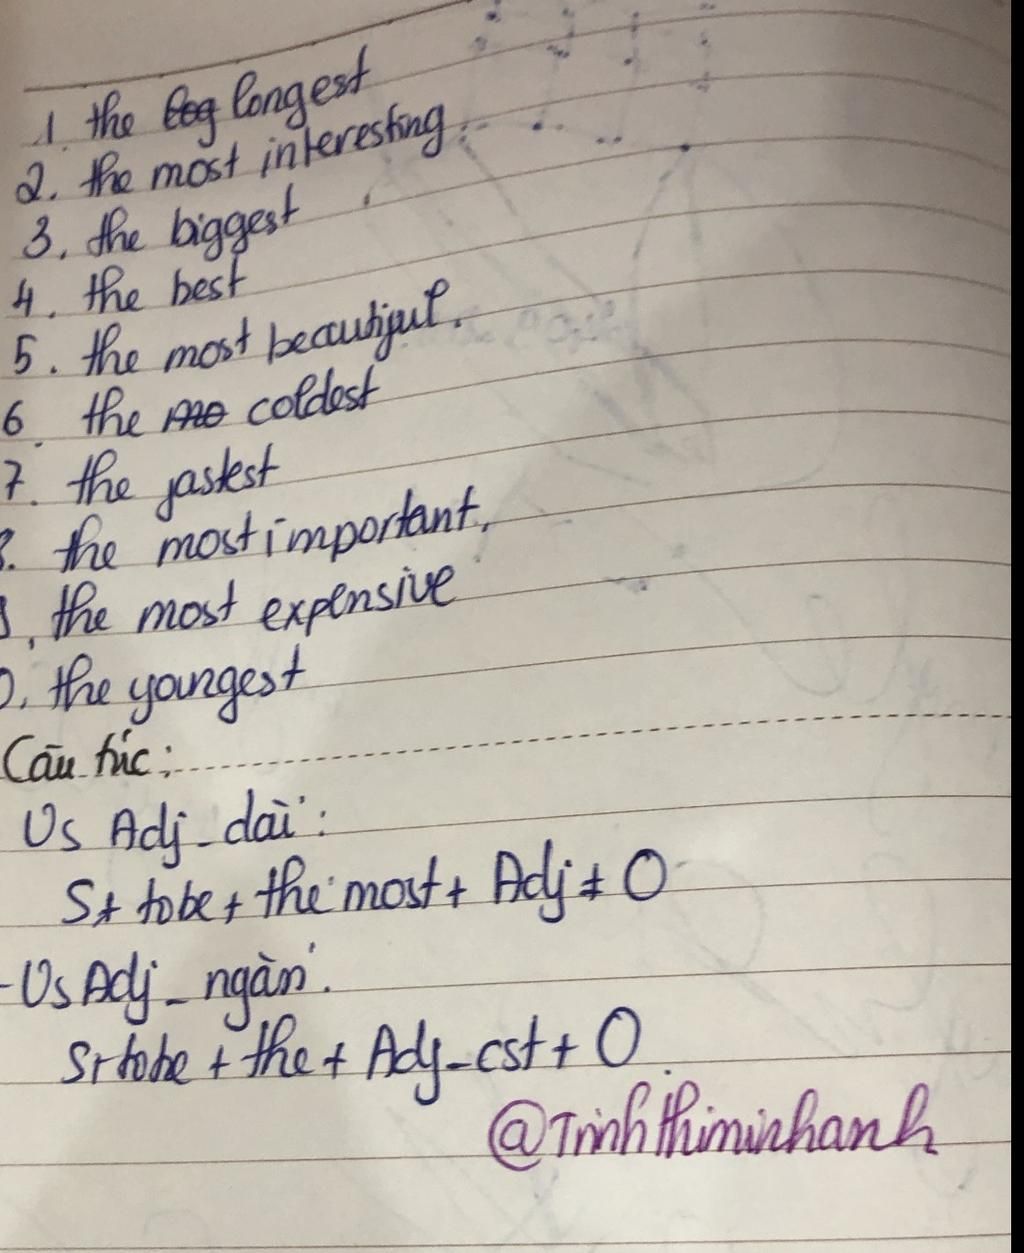 1. the longest
2. the most interesting.
3. the biggest
4. the best
5. the most beautiful.
6. the coldest
7. the fastest
8. the most important.
9. the most expensive
0. the youngest
Cấu trúc:
Vs Adj - dài:
S + tobe + the most + Adj + O
- Vs Adj - ngắn:
S + tobe + the + Adj - est + O
@Trinhthiminhanh